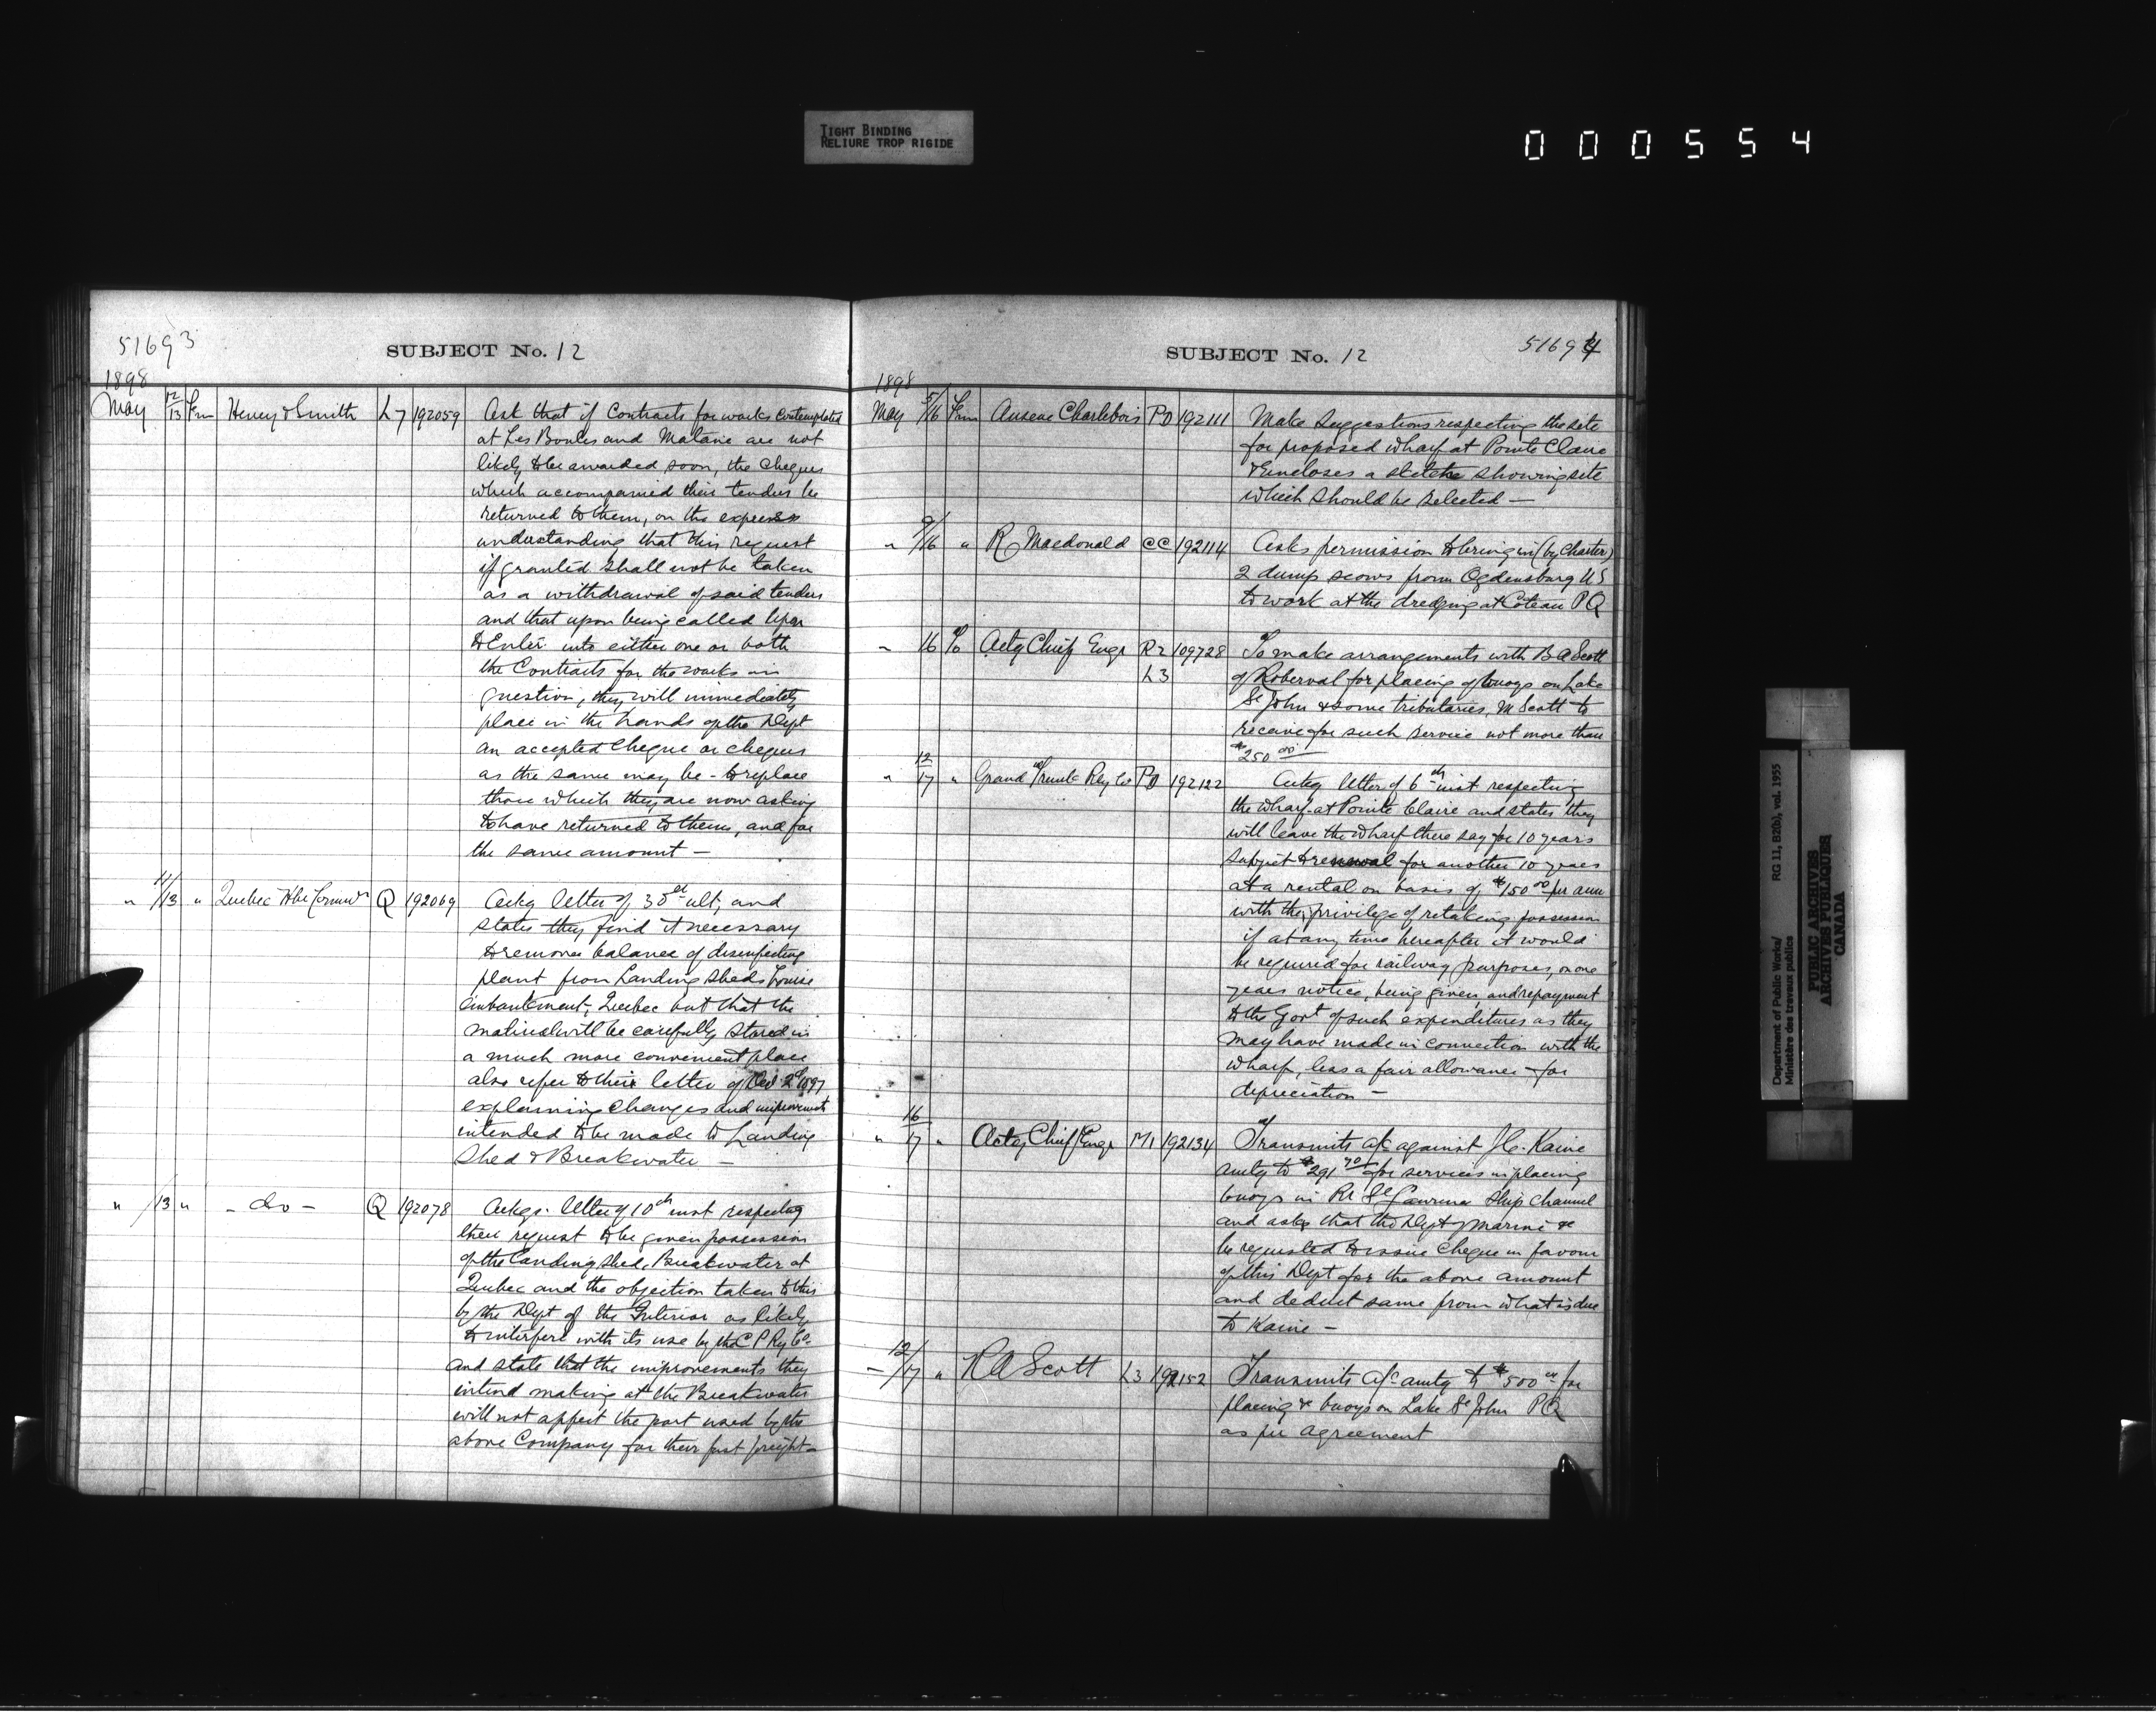 TIGHT BINDING
RELIURE TROP RIGIDE
000554
51693
SUBJECT No. 12
1898
May 12/13 Frm Heney & Smith L7 192059 Ask that if Contracts for works contemplated
at Les Boules and Matane are not
likely to be awarded soon, the cheques
which accompanied their tenders be
returned to them, on the express
understanding that this request
if granted shall not be taken
as a withdrawal of said tenders
and that upon being called upon
to Enter into either one or both
the Contracts for the works in
question, they will immediately
place in the hands of the Dept
an accepted cheque or cheques
as the same may be - to replace
those which they are now asking
to have returned to them, and for
the same amount —
" 11/13 " Quebec Hbr Commrs Q 192069 Ackg letter of 30th ult, and
states they find it necessary
to remove balance of disinfecting
plant from Landing Sheds Louise
Embankment, Quebec but that the
material will be carefully stored in
a much more convenient place
also refer to their letter of 2d 1897
explaining changes and improvements
intended to be made to Landing
Shed & Breakwater —
" /13 " - do - Q 192078 Ackgs. letter of 10th inst respecting
their request to be given possession
of the Landing Shed, Breakwater at
Quebec and the objection taken to this
by the Dept of the Interior as likely
to interfere with its use by the C P Ry Co.
and state that the improvements they
intend making at the Breakwater
will not affect the part used by the
above Company for their fast freight -
SUBJECT No. 12
51694
1898
May 5/16 Frm Arsene Charlebois PD 192111 Make suggestions respecting the site
for proposed wharf at Pointe Claire
& Encloses a sketch showing site
which should be selected —
" 9/16 " R Macdonald CC 192114 Asks permission to bring in (by Charter)
2 dump scows from Ogdensburg US
to work at the dredging at Coteau PQ
" 16 To Actg Chief Engr R2 109728 To make arrangements with B A Scott
L3 of Roberval for placing of buoys on Lake
St John & some tributaries, M Scott to
receive for such service not more than
$250 00 —
" 12/17 " Grand Trunk Rly Co PD 192122 Ackg letter of 6th inst respecting
the wharf at Pointe Claire and states they
will leave the wharf there say for 10 years
subject to renewal for another 10 years
at a rental on basis of $150 00 per ann
with the privilege of retaking possession
if at any time hereafter it would
be required for railway purposes, on one
years notice, being given, and repayment
to the Govt of such expenditures as they
may have made in connection with the
wharf, less a fair allowance for
depreciation —
" 16/17 " Actg Chief Engr M1 192134 Transmits a/c against J C. Kaine
amtg to $291 70 for services in placing
buoys in Rr St Lawrence Ship Channel
and asks that the Dept of Marine &c
be requested to issue cheque in favour
of this Dept for the above amount
and deduct same from what is due
to Kaine —
- 12/17 " A Scott L3 192152 Transmits a/c amtg to $500 00 for
placing &c buoys on Lake St John PQ
as per agreement
Department of Public Works/
Ministère des travaux publics
RG 11, B2(b), vol. 1955
PUBLIC ARCHIVES
ARCHIVES PUBLIQUES
CANADA